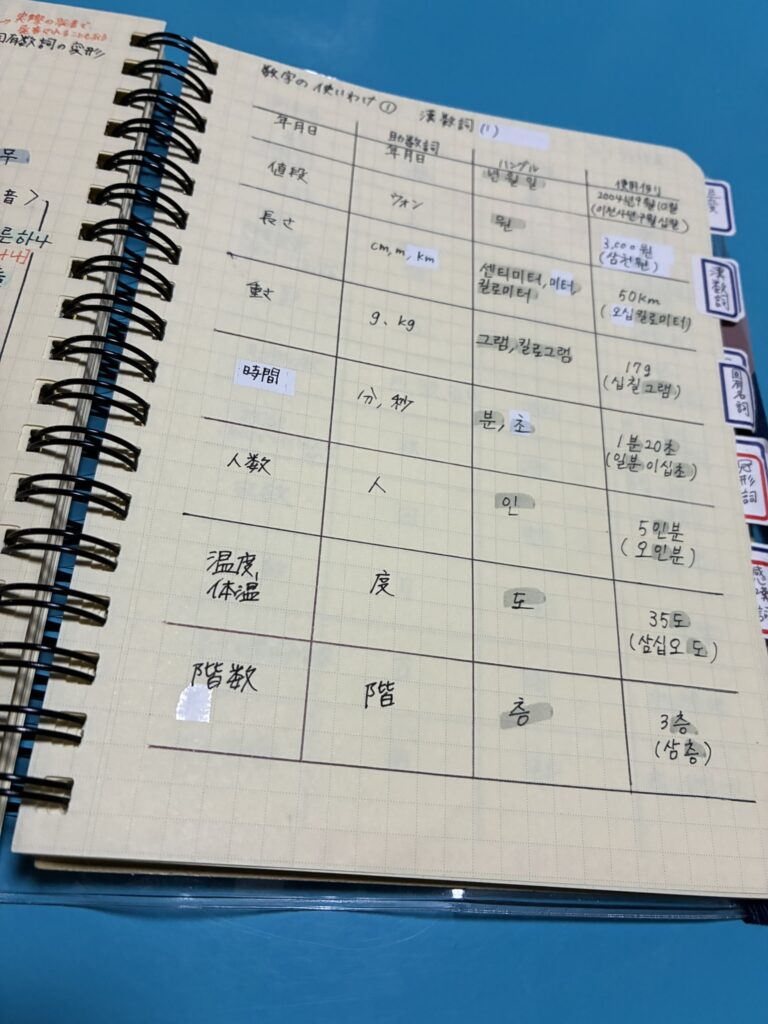 実際の
固有数詞の変形
音>
른하나
数字の使いわけ① 漢数詞(1)
助数詞 ハングル 使用例
年月日 年月日 년월일 2004年9月10日
(이천사년구월십일)
値段 ウォン 원 3,000원
(삼천원)
長さ cm, m, km 센티미터, 미터,
킬로미터
50km
(오십킬로미터)
重さ g、kg 그램, 킬로그램 17g
(십칠그램)
時間 分, 秒 분, 초 1분20초
(일분이십초)
人数 人 인 5인분
(오인분)
温度,
体温
度 도 35도
(삼십오도)
階数 階 층 3층
(삼층)
漢数詞
固有名詞
冠形詞
感嘆詞